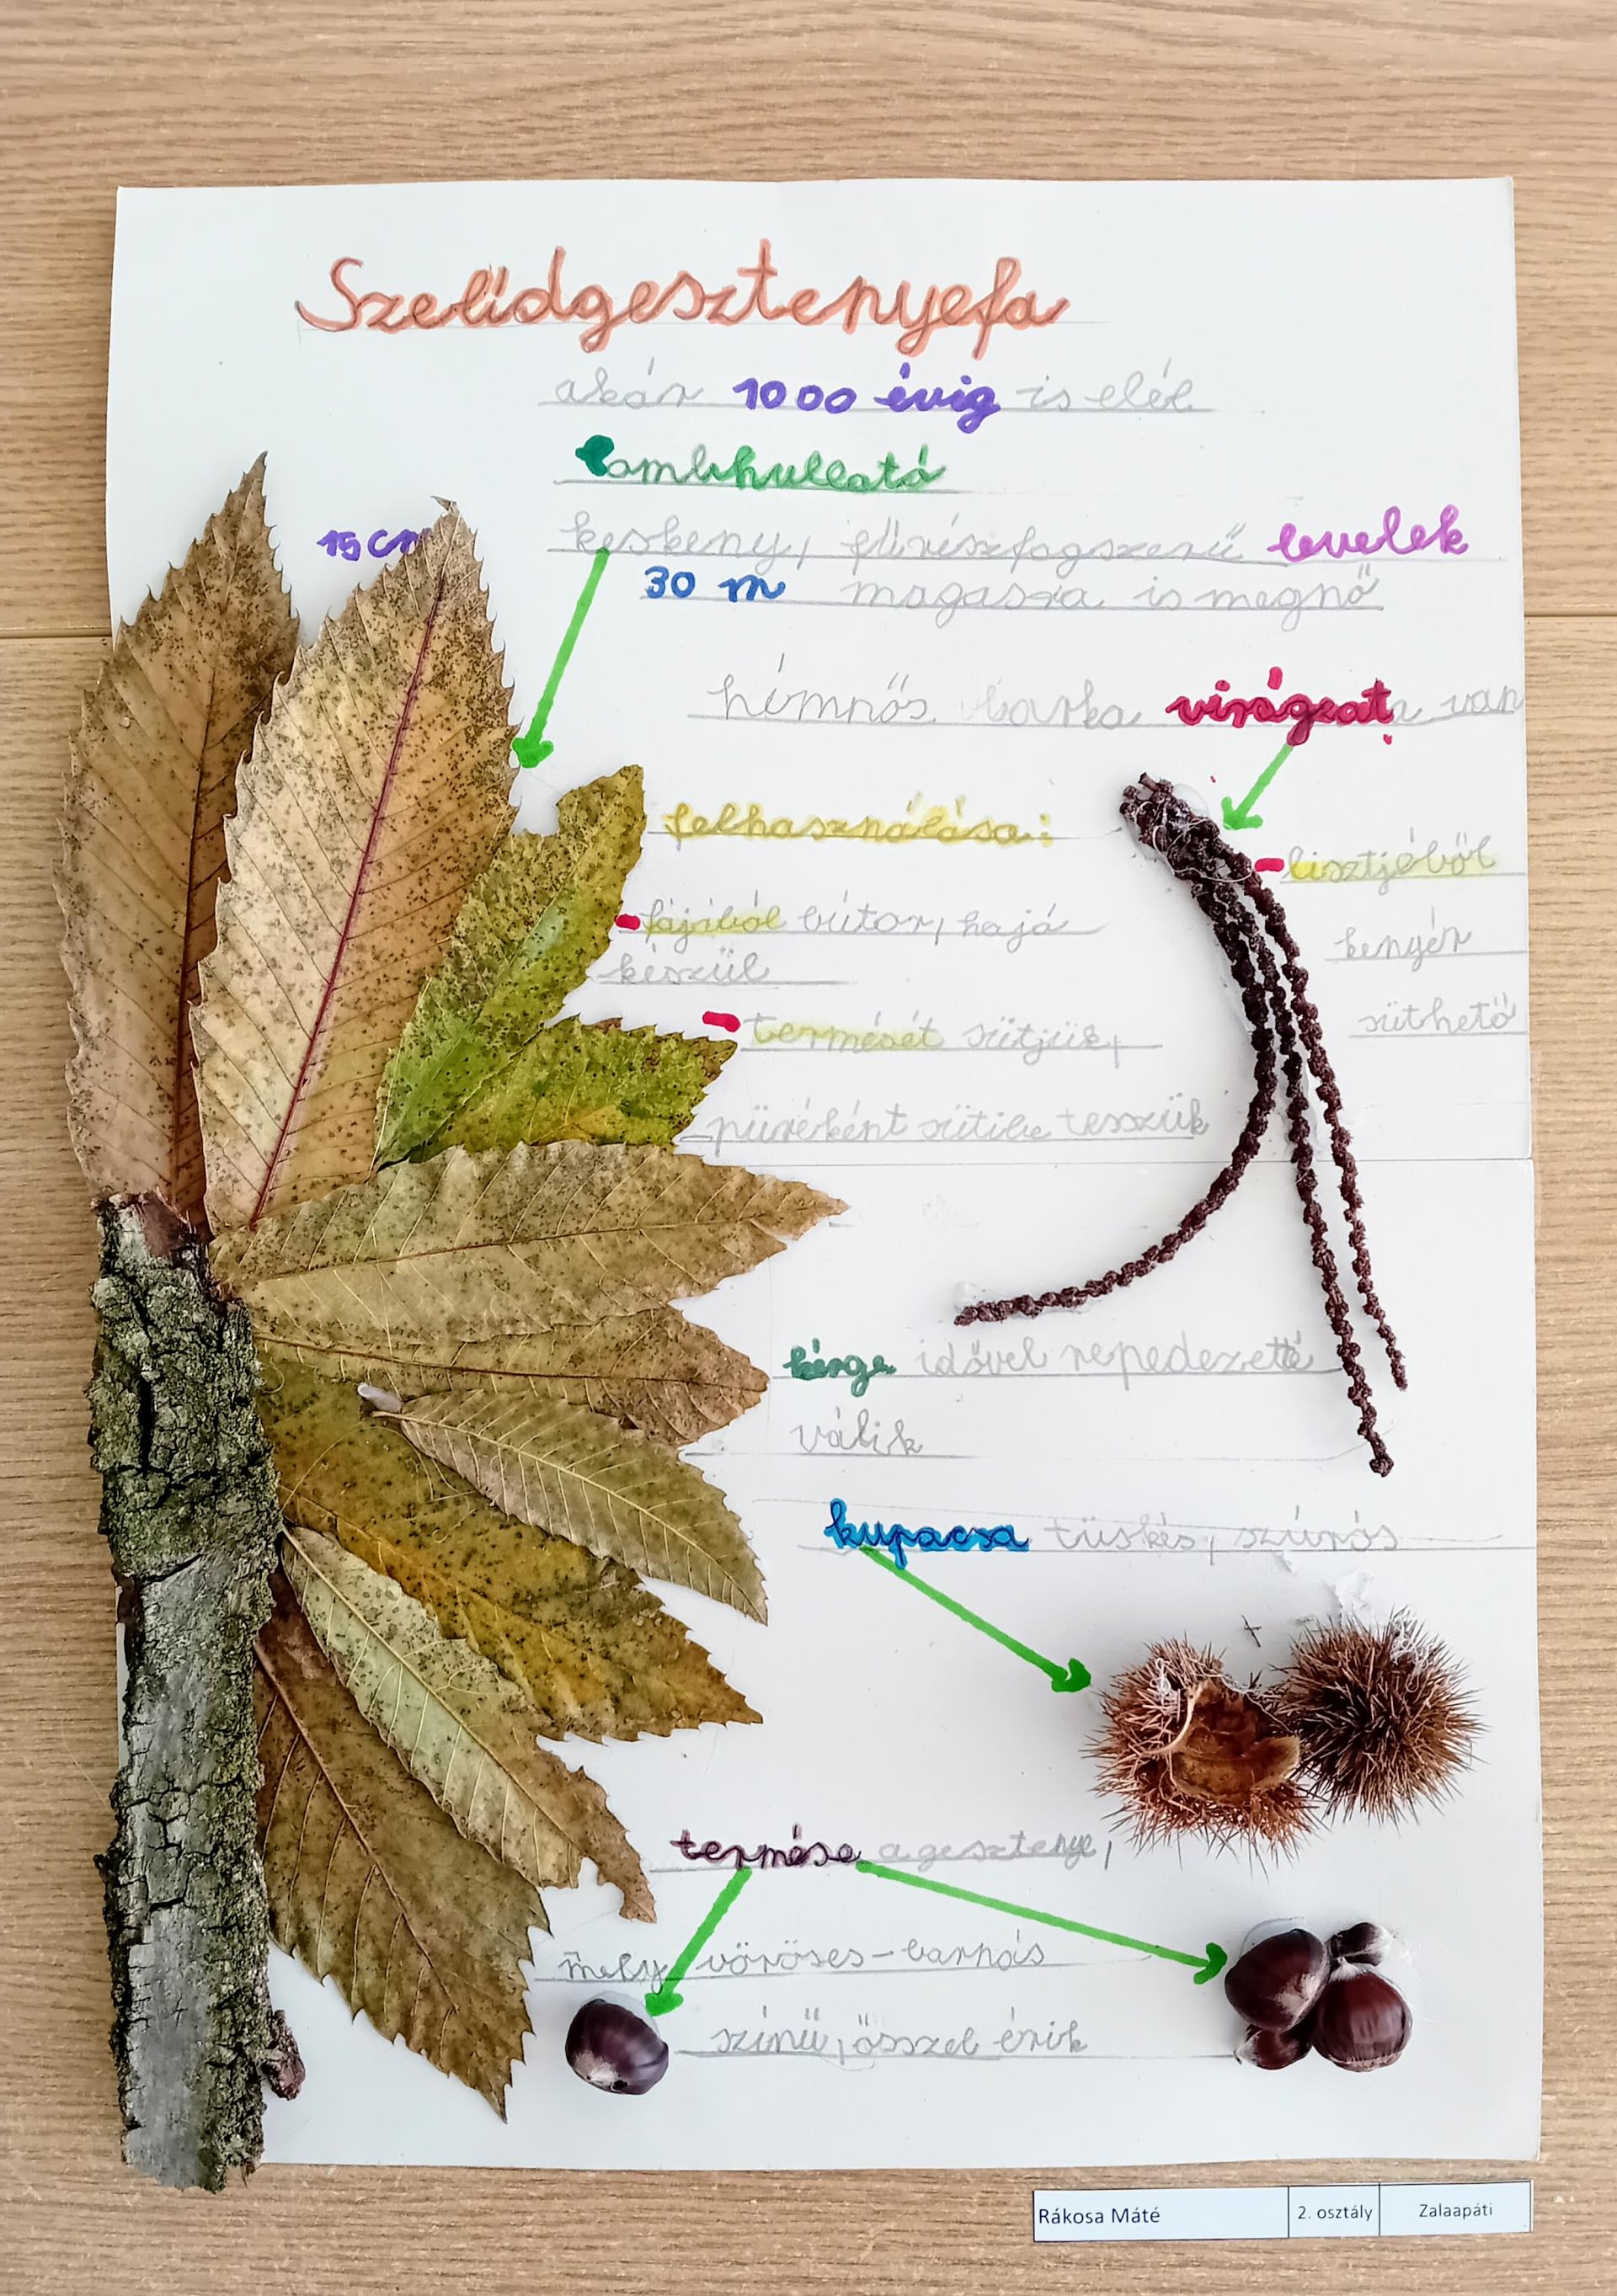 Szelídgesztenyefa
akár 1000 évig is elél
Lombhullató
15 cm
keskeny, fűrészfogszerű levelek
30 m magasra is megnő
hímnős barka virágzata van
felhasználása:
- fájából bútor, hajó
készül
- termését sütjük,
püréként sütibe tesszük
- lisztjéből
kenyér
süthető
kérge idővel repedezetté
válik
kupacsa tüskés, szúrós
termése a gesztenye,
mely vöröses-barnás
színű, ősszel érik
Rákosa Máté 2. osztály Zalaapáti